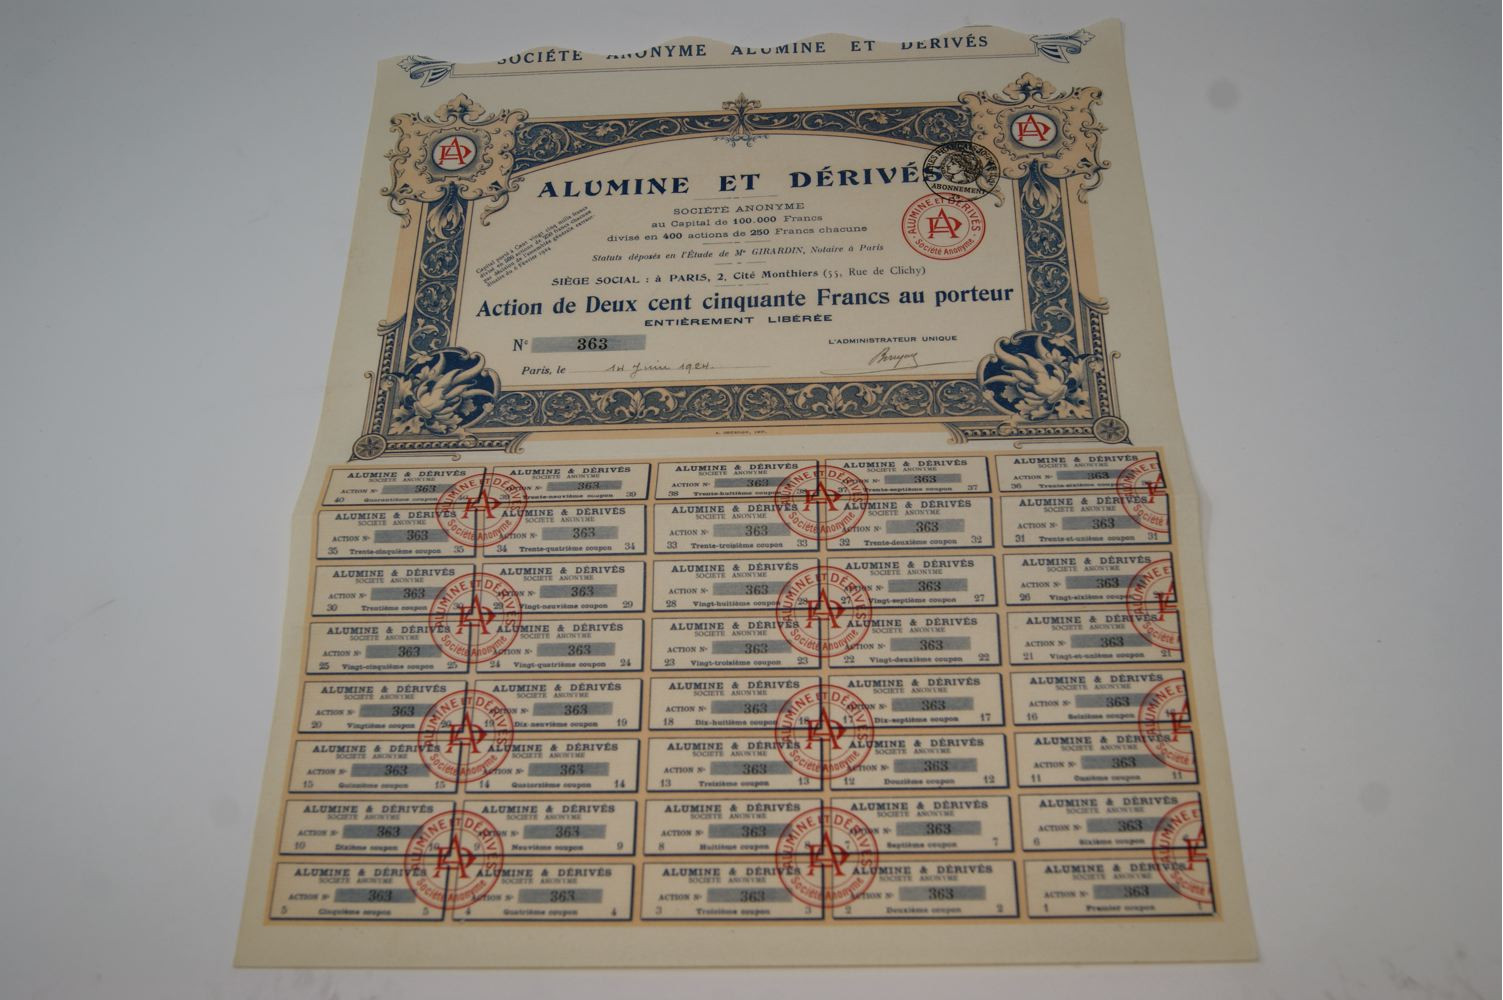 SOCIÉTÉ ANONYME ALUMINE ET DÉRIVÉS
ALUMINE ET DÉRIVÉS
SOCIÉTÉ ANONYME
au Capital de 100.000 Francs
divisé en 400 actions de 250 Francs chacune
Statuts déposés en l'Étude de Me GIRARDIN, Notaire à Paris
SIÈGE SOCIAL : à PARIS, 2, Cité Monthiers (55, Rue de Clichy)
Action de Deux cent cinquante Francs au porteur
ENTIÈREMENT LIBÉRÉE
No 363
L'ADMINISTRATEUR UNIQUE
Paris, le 14 Juin 1924.
Capital porté à Cent vingt cinq mille francs
divisé en 500 actions de 250 francs chacune
par décision de l'assemblée générale extraor-
dinaire du 6 Février 1924
ABONNEMENT
ALUMINE ET DÉRIVÉS
Société Anonyme
ALUMINE & DÉRIVÉS ALUMINE & DÉRIVÉS ALUMINE & DÉRIVÉS ALUMINE & DÉRIVÉS ALUMINE & DÉRIVÉS
SOCIÉTÉ ANONYME SOCIÉTÉ ANONYME SOCIÉTÉ ANONYME SOCIÉTÉ ANONYME SOCIÉTÉ ANONYME
ACTION No 363 ACTION No 363 ACTION No 363 ACTION No 363 ACTION No 363
40 Quarantième coupon 40 39 Trente-neuvième coupon 39 38 Trente-huitième coupon 38 37 Trente-septième coupon 37 36 Trente-sixième coupon
ALUMINE & DÉRIVÉS ALUMINE & DÉRIVÉS ALUMINE & DÉRIVÉS ALUMINE & DÉRIVÉS ALUMINE & DÉRIVÉS
SOCIÉTÉ ANONYME SOCIÉTÉ ANONYME SOCIÉTÉ ANONYME SOCIÉTÉ ANONYME SOCIÉTÉ ANONYME
ACTION No 363 ACTION No 363 ACTION No 363 ACTION No 363 ACTION No 363
35 Trente-cinquième coupon 35 34 Trente-quatrième coupon 34 33 Trente-troisième coupon 33 32 Trente-deuxième coupon 32 31 Trente-et-unième coupon 31
ALUMINE & DÉRIVÉS ALUMINE & DÉRIVÉS ALUMINE & DÉRIVÉS ALUMINE & DÉRIVÉS ALUMINE & DÉRIVÉS
SOCIÉTÉ ANONYME SOCIÉTÉ ANONYME SOCIÉTÉ ANONYME SOCIÉTÉ ANONYME SOCIÉTÉ ANONYME
ACTION No 363 ACTION No 363 ACTION No 363 ACTION No 363 ACTION No 363
30 Trentième coupon 30 29 Vingt-neuvième coupon 29 28 Vingt-huitième coupon 28 27 Vingt-septième coupon 27 26 Vingt-sixième coupon
ALUMINE & DÉRIVÉS ALUMINE & DÉRIVÉS ALUMINE & DÉRIVÉS ALUMINE & DÉRIVÉS ALUMINE & DÉRIVÉS
SOCIÉTÉ ANONYME SOCIÉTÉ ANONYME SOCIÉTÉ ANONYME SOCIÉTÉ ANONYME SOCIÉTÉ ANONYME
ACTION No 363 ACTION No 363 ACTION No 363 ACTION No 363 ACTION No 363
25 Vingt-cinquième coupon 25 24 Vingt-quatrième coupon 24 23 Vingt-troisième coupon 23 22 Vingt-deuxième coupon 22 21 Vingt-et-unième coupon 21
ALUMINE & DÉRIVÉS ALUMINE & DÉRIVÉS ALUMINE & DÉRIVÉS ALUMINE & DÉRIVÉS ALUMINE & DÉRIVÉS
SOCIÉTÉ ANONYME SOCIÉTÉ ANONYME SOCIÉTÉ ANONYME SOCIÉTÉ ANONYME SOCIÉTÉ ANONYME
ACTION No 363 ACTION No 363 ACTION No 363 ACTION No 363 ACTION No 363
20 Vingtième coupon 20 19 Dix-neuvième coupon 19 18 Dix-huitième coupon 18 17 Dix-septième coupon 17 16 Seizième coupon 16
ALUMINE & DÉRIVÉS ALUMINE & DÉRIVÉS ALUMINE & DÉRIVÉS ALUMINE & DÉRIVÉS ALUMINE & DÉRIVÉS
SOCIÉTÉ ANONYME SOCIÉTÉ ANONYME SOCIÉTÉ ANONYME SOCIÉTÉ ANONYME SOCIÉTÉ ANONYME
ACTION No 363 ACTION No 363 ACTION No 363 ACTION No 363 ACTION No 363
15 Quinzième coupon 15 14 Quatorzième coupon 14 13 Treizième coupon 13 12 Douzième coupon 12 11 Onzième coupon 11
ALUMINE & DÉRIVÉS ALUMINE & DÉRIVÉS ALUMINE & DÉRIVÉS ALUMINE & DÉRIVÉS ALUMINE & DÉRIVÉS
SOCIÉTÉ ANONYME SOCIÉTÉ ANONYME SOCIÉTÉ ANONYME SOCIÉTÉ ANONYME SOCIÉTÉ ANONYME
ACTION No 363 ACTION No 363 ACTION No 363 ACTION No 363 ACTION No 363
10 Dixième coupon 10 9 Neuvième coupon 9 8 Huitième coupon 8 7 Septième coupon 7 6 Sixième coupon 6
ALUMINE & DÉRIVÉS ALUMINE & DÉRIVÉS ALUMINE & DÉRIVÉS ALUMINE & DÉRIVÉS ALUMINE & DÉRIVÉS
SOCIÉTÉ ANONYME SOCIÉTÉ ANONYME SOCIÉTÉ ANONYME SOCIÉTÉ ANONYME SOCIÉTÉ ANONYME
ACTION No 363 ACTION No 363 ACTION No 363 ACTION No 363 ACTION No 363
5 Cinquième coupon 5 4 Quatrième coupon 4 3 Troisième coupon 3 2 Deuxième coupon 2 1 Premier coupon 1